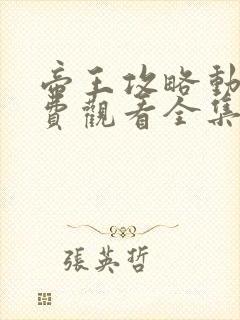 帝王攻略動
費觀看全集
張英哲